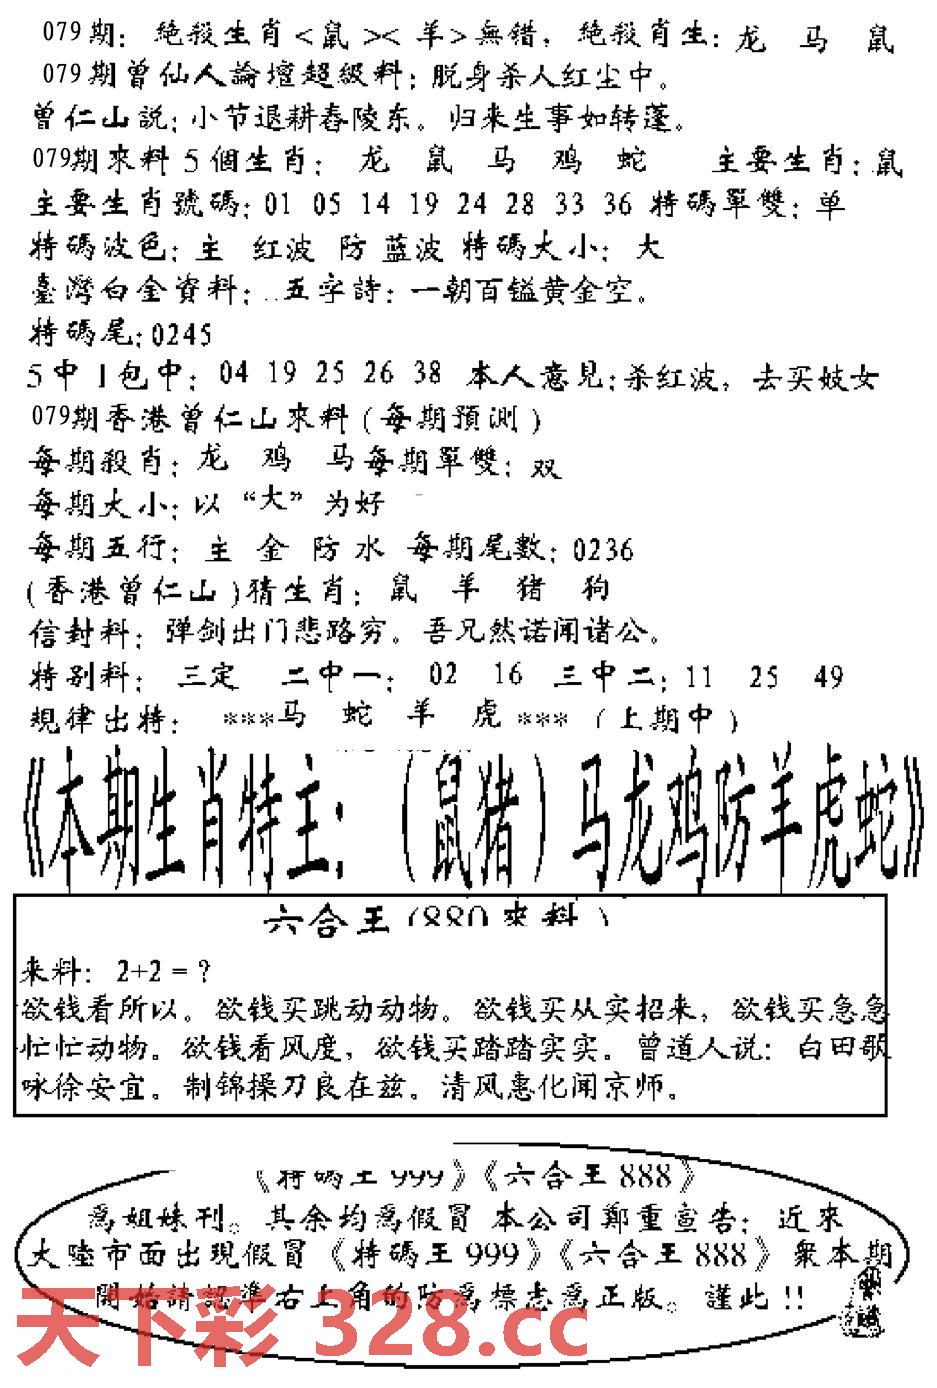 079期: 绝殺生肖<鼠><羊>無错, 绝殺肖生: 龙 马 鼠
079期曾仙人論壇超級料: 脱身杀人红尘中。
曾仁山説: 小节退耕舂陵东。归来生事如转蓬。
079期來料 5 個生肖: 龙 鼠 马 鸡 蛇 主要生肖: 鼠
主要生肖號碼: 01 05 14 19 24 28 33 36 特碼單雙: 单
特碼波色: 主 红波 防 蓝波 特碼大小: 大
臺灣白金資料: 五字詩: 一朝百镒黄金空。
特碼尾: 0245
5 中 1 包中: 04 19 25 26 38 本人意見: 杀红波, 去买妓女
079期香港曾仁山來料 (每期預測)
每期殺肖: 龙 鸡 马 每期單雙: 双
每期大小: 以“大”为好
每期五行: 主 金 防 水 每期尾數: 0236
(香港曾仁山)猜生肖: 鼠 羊 猪 狗
信封料: 弹剑出门悲路穷。吾兄然诺闻诸公。
特别料: 三定 二中一: 02 16 三中二: 11 25 49
規律出特: ***马 蛇 羊 虎*** (上期中)
《本期生肖特主: (鼠猪) 马龙鸡防羊虎蛇》
六合王 (880來料)
来料: 2+2 = ?
欲钱看所以。欲钱买跳动动物。欲钱买从实招来, 欲钱买急急
忙忙动物。欲钱看风度, 欲钱买踏踏实实。曾道人说: 白田歌
咏徐安宜。制锦操刀良在兹。清风惠化闻京师。
《特碼王 999》《六合王 888》
爲姐妹刊。其余均爲假冒 本公司鄭重宣告: 近來
大陸市面出現假冒《特碼王 999》《六合王 888》衆本期
開始請認準右上角的防爲標志爲正版。謹此 !!
天下彩 328.cc